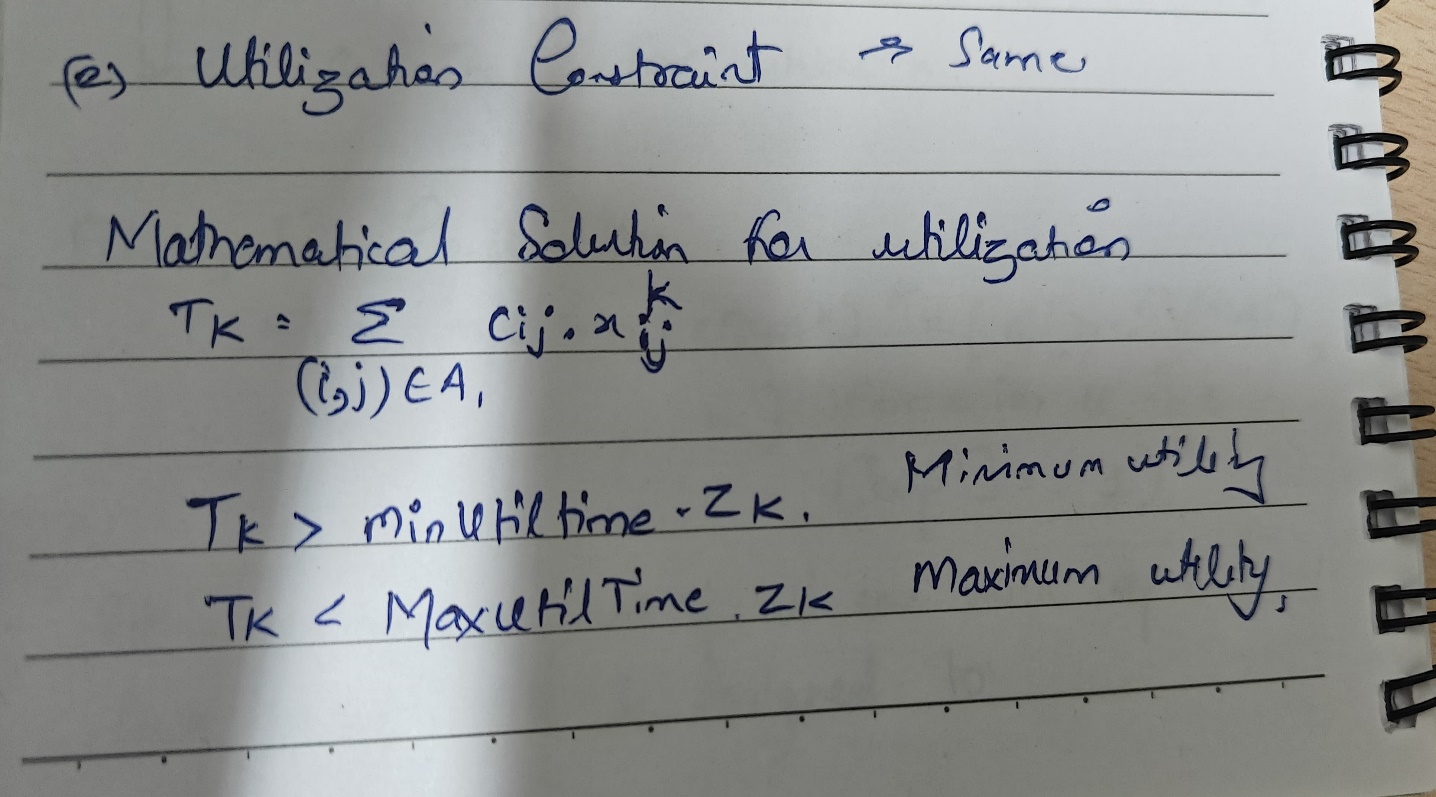 (2) Utilization Constraint → Same
Mathematical Solution for utilization
TK = Σ Cij . x k ij
(i,j) ∈ A,
TK > minUtiltime . ZK. Minimum utility
TK < MaxutilTime . ZK Maximum utility,